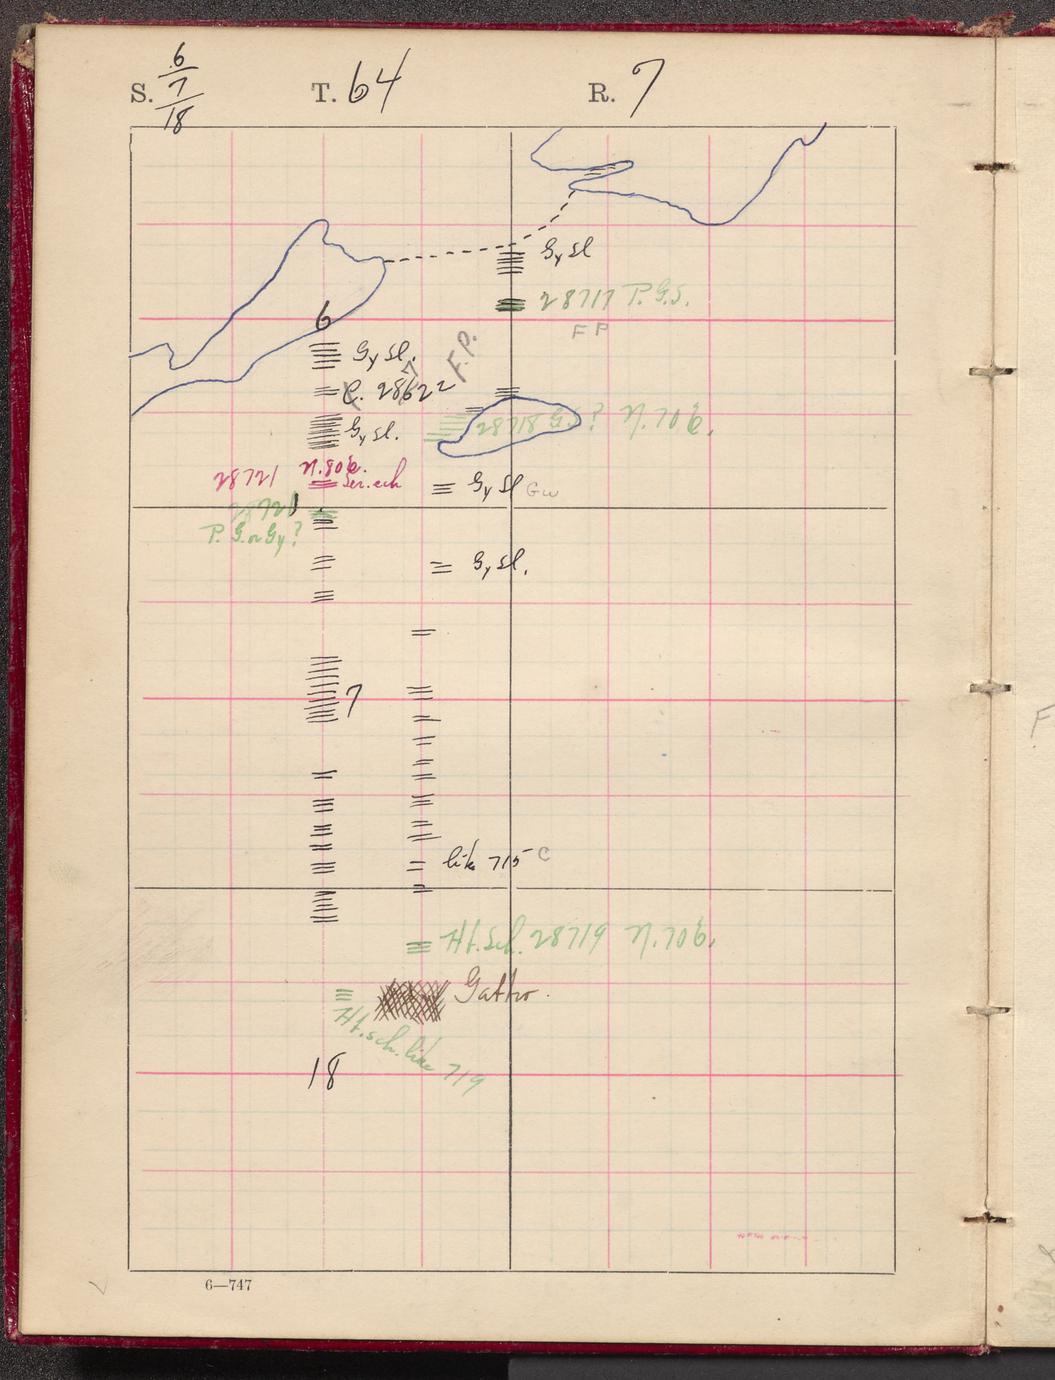 S. 6/7/18 T. 64 R. 7
Gy Sl
28717 P.G.S.
F P
6
Gy Sl.
F.P.
C. 28622
28718 G.S.? N.70E.
Gy Sl.
N.80E.
28721 Ser. sch
Gy Sl Gw
28720
P.G. or Gy?
Gy Sl.
7
like 715 C
Ht. Sch. 28719 N.70E.
Gabbro.
Ht. sch. like 719
18
6—747